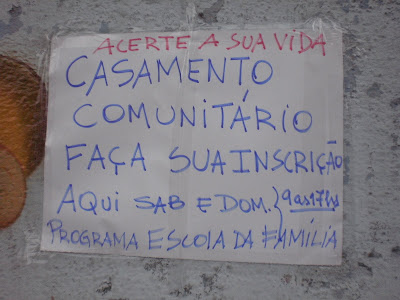 ACERTE A SUA VIDA
CASAMENTO
COMUNITÁRIO
FAÇA SUA INSCRIÇÃO
AQUI SAB E DOM. } 9 as 17hs
PROGRAMA ESCOLA DA FAMÍLIA